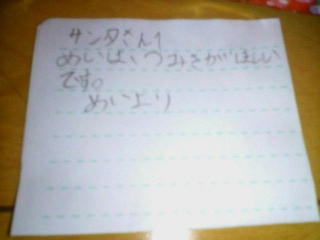 サンタさんへ
めいは、つみきがほしい
です。
めいより